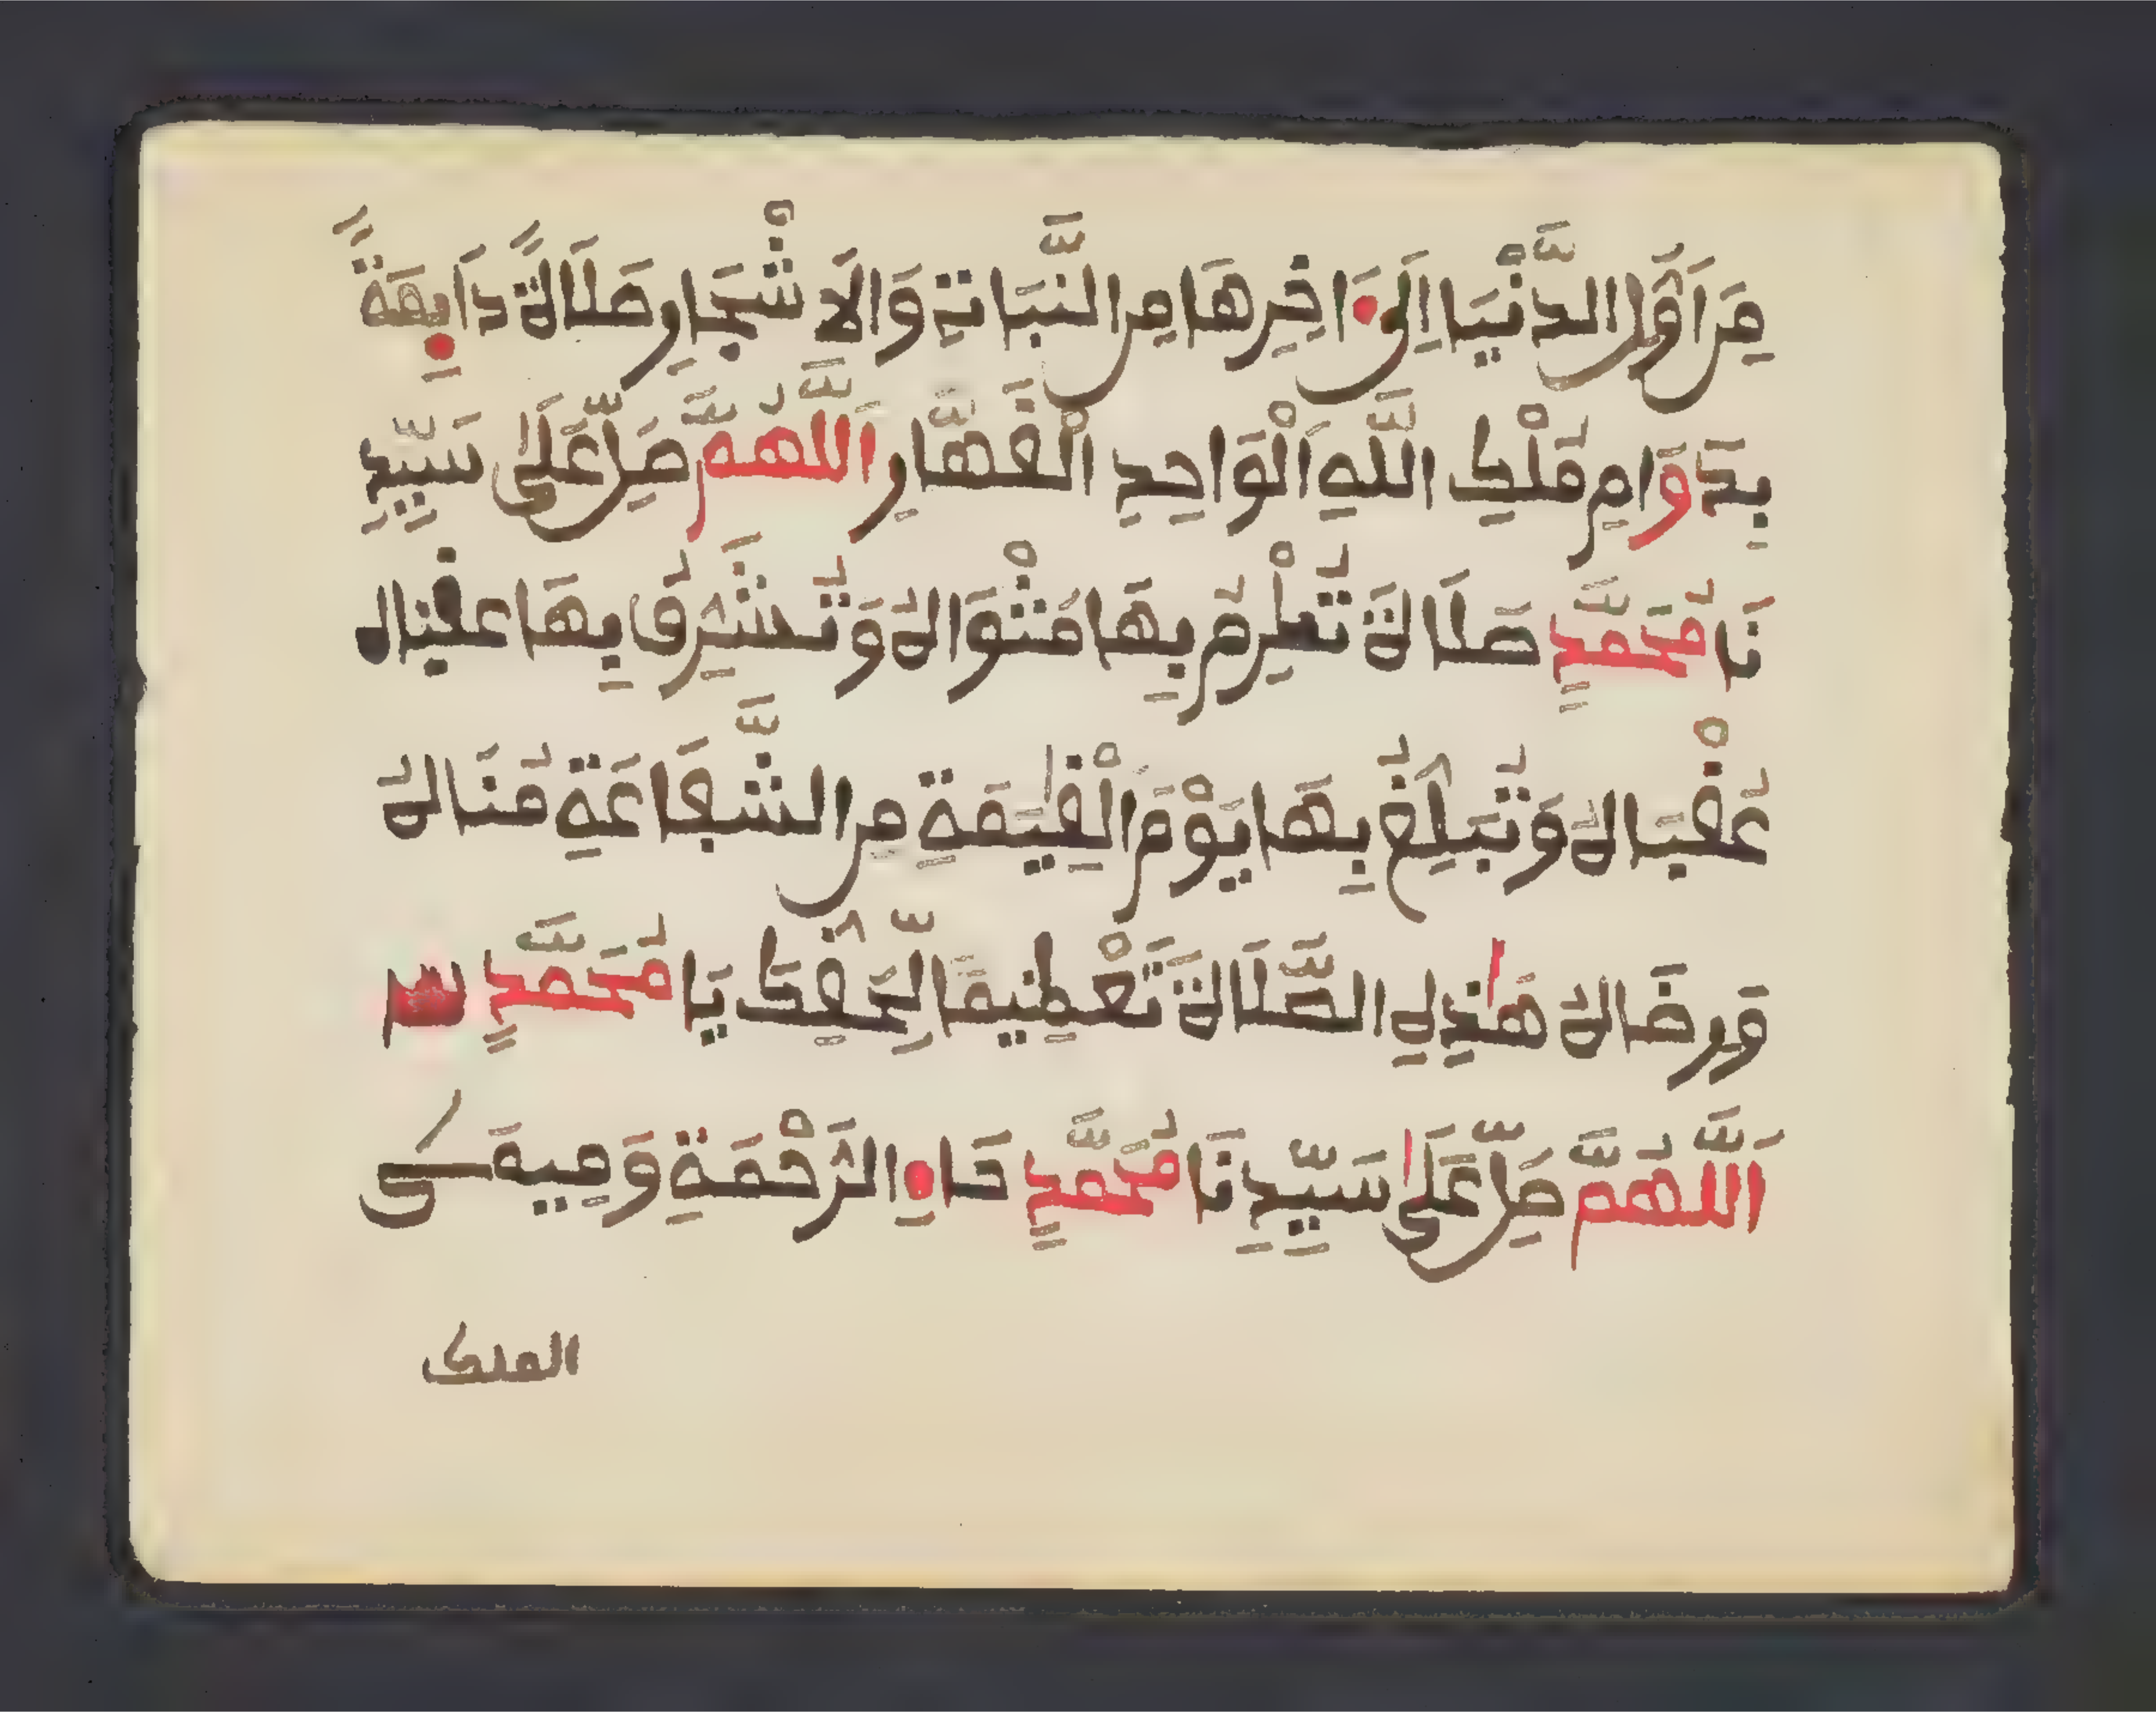 مِنَ اَوَّلِ الدُّنْيَا اِلَىٰ ءَاخِرِهَا مِنَ النَّبَاتِ وَالاَشْجَارِ صَلَاةً دَاىِٕمَةً
بِدَوَامِ مُلْكِ اللَّهِ اَلْوَاحِدِ الْقَهَّارِ اَللَّهُمَّ صَلِّ عَلَىٰ سَيِّدِ
نَا مُحَمَّدٍ صَلَاةً تُكْرِمُ بِهَا مَثْوَاهُ وَتُشَرِّفُ بِهَا عقبال
عُقْبَاهُ وَتُبَلِّغُ بِهَا يَوْمَ الْقِيَٰمَةِ مِنَ الشَّفَاعَةِ مُنَاهُ
وَرِضَاهُ هَٰذِهِ الصَّلَاةُ تَعْظِيمًا لِّحَقِّكَ يَا مُحَمَّدٍ
اَللَّهُمَّ صَلِّ عَلَىٰ سَيِّدِنَا مُحَمَّدٍ حَاءِ الرَّحْمَةِ وَمِيمَىِ
الملك